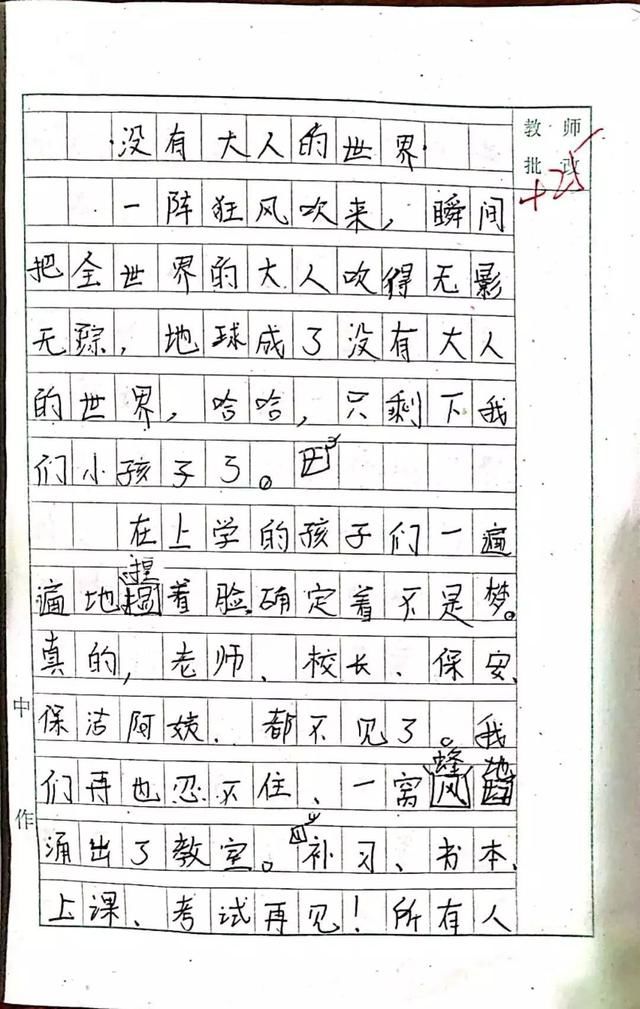 没有大人的世界
教师
批改
+25
一阵狂风吹来，瞬间
把全世界的大人吹得无影
无踪，地球成了没有大人
的世界，哈哈，只剩下我
们小孩子了。
在上学的孩子们一遍
遍地捏着脸确定着不是梦。
真的，老师、校长、保安、
保洁阿姨、都不见了。我
们再也忍不住、一窝蜂地
涌出了教室。补习、书本、
上课、考试再见！所有人
中作